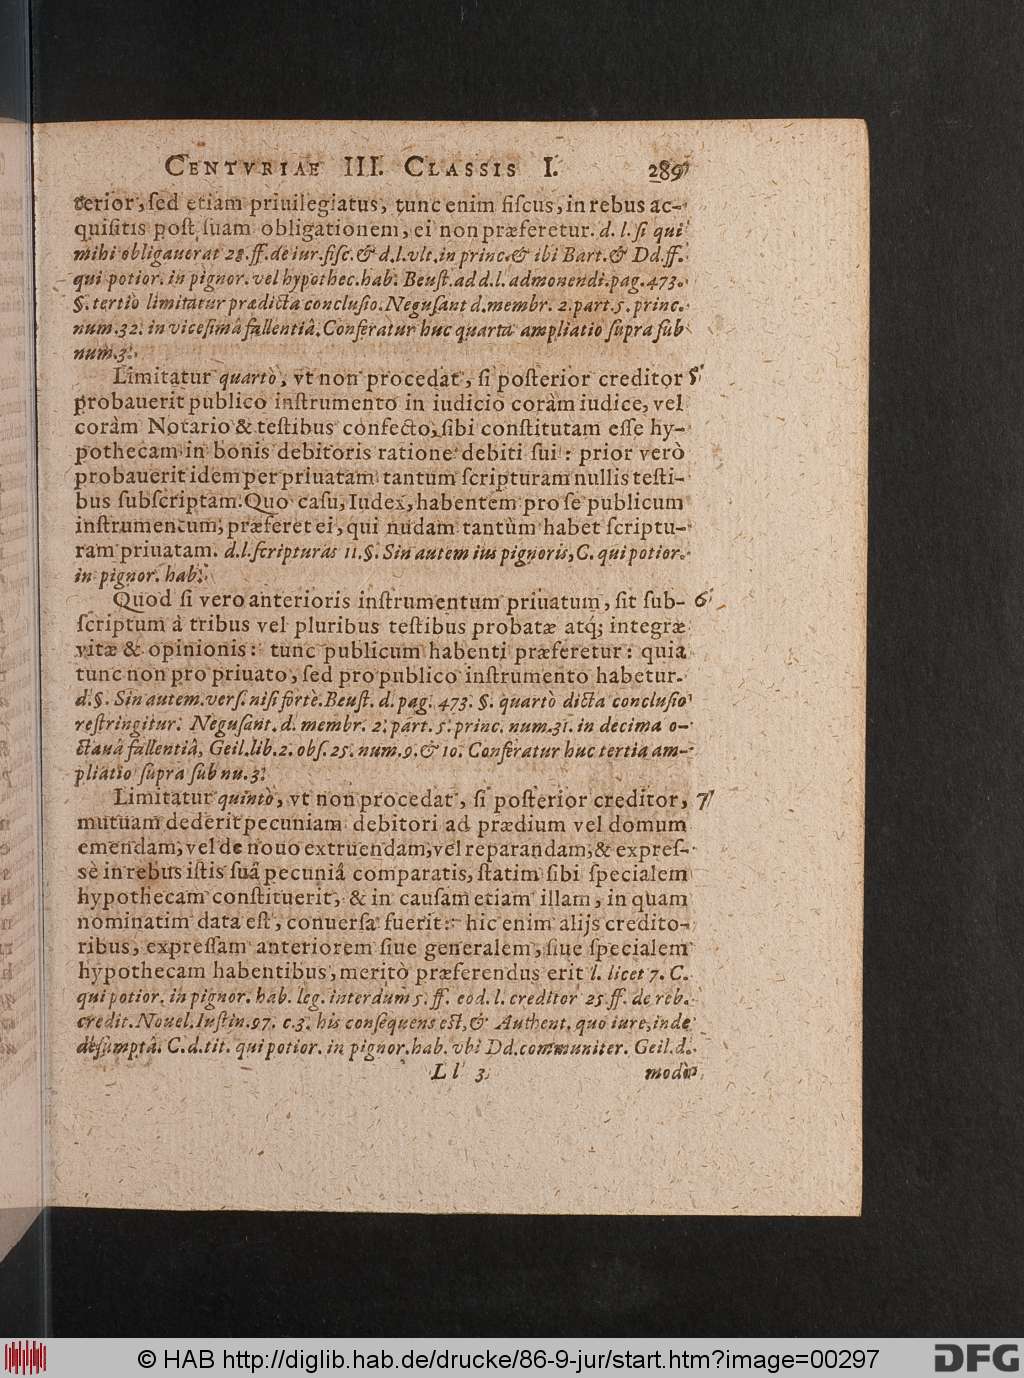 CENTVRIAE III. CLASSIS I. 289
terior, ſed etiam priuilegiatus, tunc enim fiſcus, in rebus ac-
quiſitis poſt ſuam obligationem, ei non præferetur. d. l. ſi qui
mihi obligauerat 28. ff. de iur. fiſc. & d. l. vlt. in princ. & ibi Bart. & Dd. ff.
qui potior. in pignor. vel hypothec. hab. Beuſt. ad d. l. admonendi. pag. 473.
§. tertiò limitatur prædicta concluſio. Neguſant d. membr. 2. part. 5. princ.
num. 32. in viceſimâ fallentiâ. Conferatur huc quarta ampliatio ſupra ſub
num. 3.
Limitatur quartò, vt non procedat, ſi poſterior creditor 5
probauerit publico inſtrumento in iudicio coràm iudice, vel
coràm Notario & teſtibus confecto, ſibi conſtitutam eſſe hy-
pothecam in bonis debitoris ratione debiti ſui: prior verò
probauerit idem per priuatam tantum ſcripturam nullis teſti-
bus ſubſcriptam. Quo caſu, Iudex, habentem pro ſe publicum
inſtrumentum, præferet ei, qui nudam tantùm habet ſcriptu-
ram priuatam. d. l. ſcripturas 11. §. Sin autem ius pignoris, C. qui potior.
in pignor. hab.
Quod ſi vero anterioris inſtrumentum priuatum, ſit ſub- 6
ſcriptum à tribus vel pluribus teſtibus probatæ atq́; integræ
vitæ & opinionis: tunc publicum habenti præferetur: quia
tunc non pro priuato, ſed pro publico inſtrumento habetur.
d. §. Sin autem. verſ. niſi fortè. Beuſt. d. pag. 473. §. quartò dicta concluſio
reſtringitur. Neguſant. d. membr. 2. part. 5. princ. num. 31. in decima o-
ctauâ fallentiâ, Geil. lib. 2. obſ. 25. num. 9. & 10. Conferatur huc tertia am-
pliatio ſupra ſub nu. 3.
Limitatur quintò, vt non procedat, ſi poſterior creditor, 7
mutuam dederit pecuniam debitori ad prædium vel domum
emendam, vel de nouo extruendam, vel reparandam, & expreſ-
sè in rebus iſtis ſuâ pecuniâ comparatis, ſtatim ſibi ſpecialem
hypothecam conſtituerit, & in cauſam etiam illam, in quam
nominatim data eſt, conuerſa fuerit: hic enim alijs credito-
ribus, expreſſam anteriorem ſiue generalem, ſiue ſpecialem
hypothecam habentibus, meritò præferendus erit l. licet 7. C.
qui potior. in pignor. hab. leg. interdum 5. ff. eod. l. creditor 25. ff. de reb.
credit. Nouel. Iuſtin. 97. c. 3. his conſequens eſt, & Authent. quo iure, inde
deſumptâ. C. d. tit. qui potior. in pignor. hab. vbi Dd. communiter. Geil. d.
Ll 3 modò
© HAB http://diglib.hab.de/drucke/86-9-jur/start.htm?image=00297 DFG